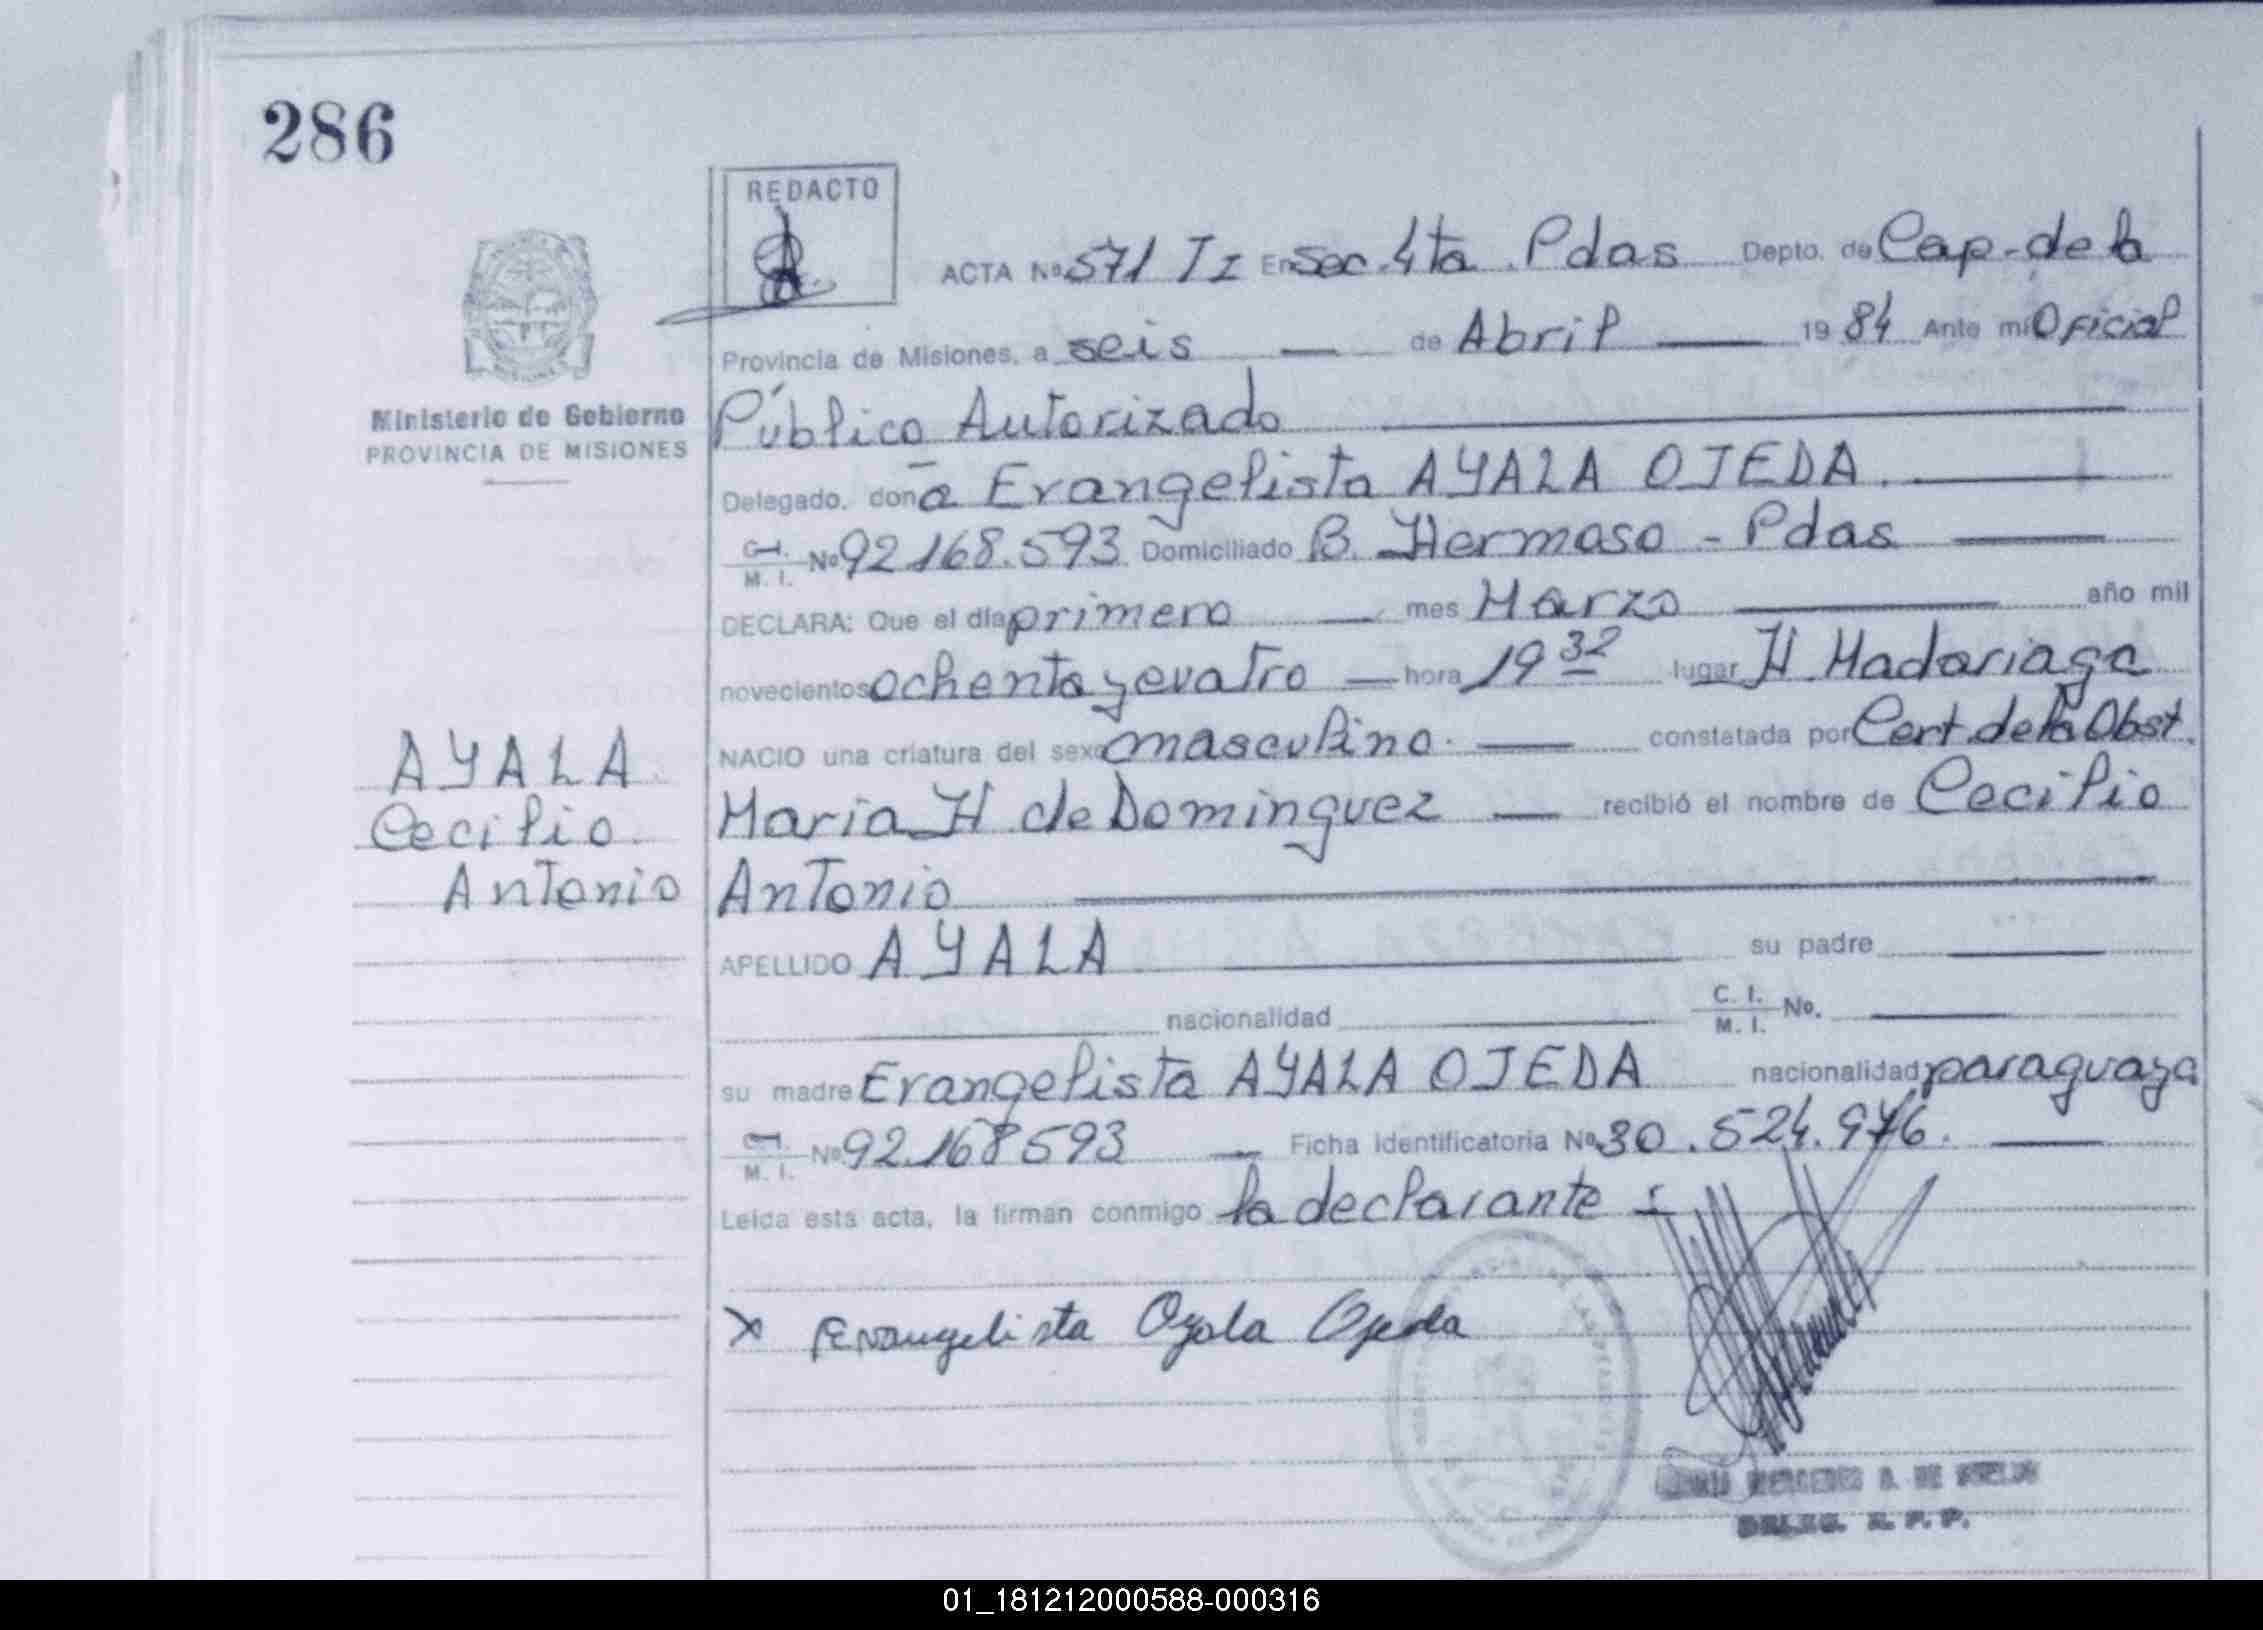 286
REDACTO
ACTA No 571 T I En Sec. 4ta. Pdas Depto. de Cap. de la
Provincia de Misiones, a seis — de Abril — 19 84 Ante mi Oficial
Ministerio de Gobierno
PROVINCIA DE MISIONES
Público Autorizado
Delegado, doña Evangelista AYALA OJEDA.
C.I. M. I. No 92.168.593 Domiciliado B. Hermoso - Pdas
DECLARA: Que el día primero — mes Marzo — año mil
novecientos ochenta y cuatro — hora 19 32 lugar H. Madariaga
NACIO una criatura del sexo masculino. — constatada por Cert. de la Obst.
Maria H de Dominguez — recibió el nombre de Cecilio
Antonio
AYALA
Cecilio
Antonio
APELLIDO AYALA — su padre —
nacionalidad — C. I. M. I. No. —
su madre Evangelista AYALA OJEDA nacionalidad paraguaya
C.I. M. I. No 92.168593 — Ficha identificatoria No 30.524.976. —
Leída esta acta, la firman conmigo la declarante
x Evangelista Ayala Ojeda
MERCEDES DE
DELEG. R. P. P.
01_181212000588-000316